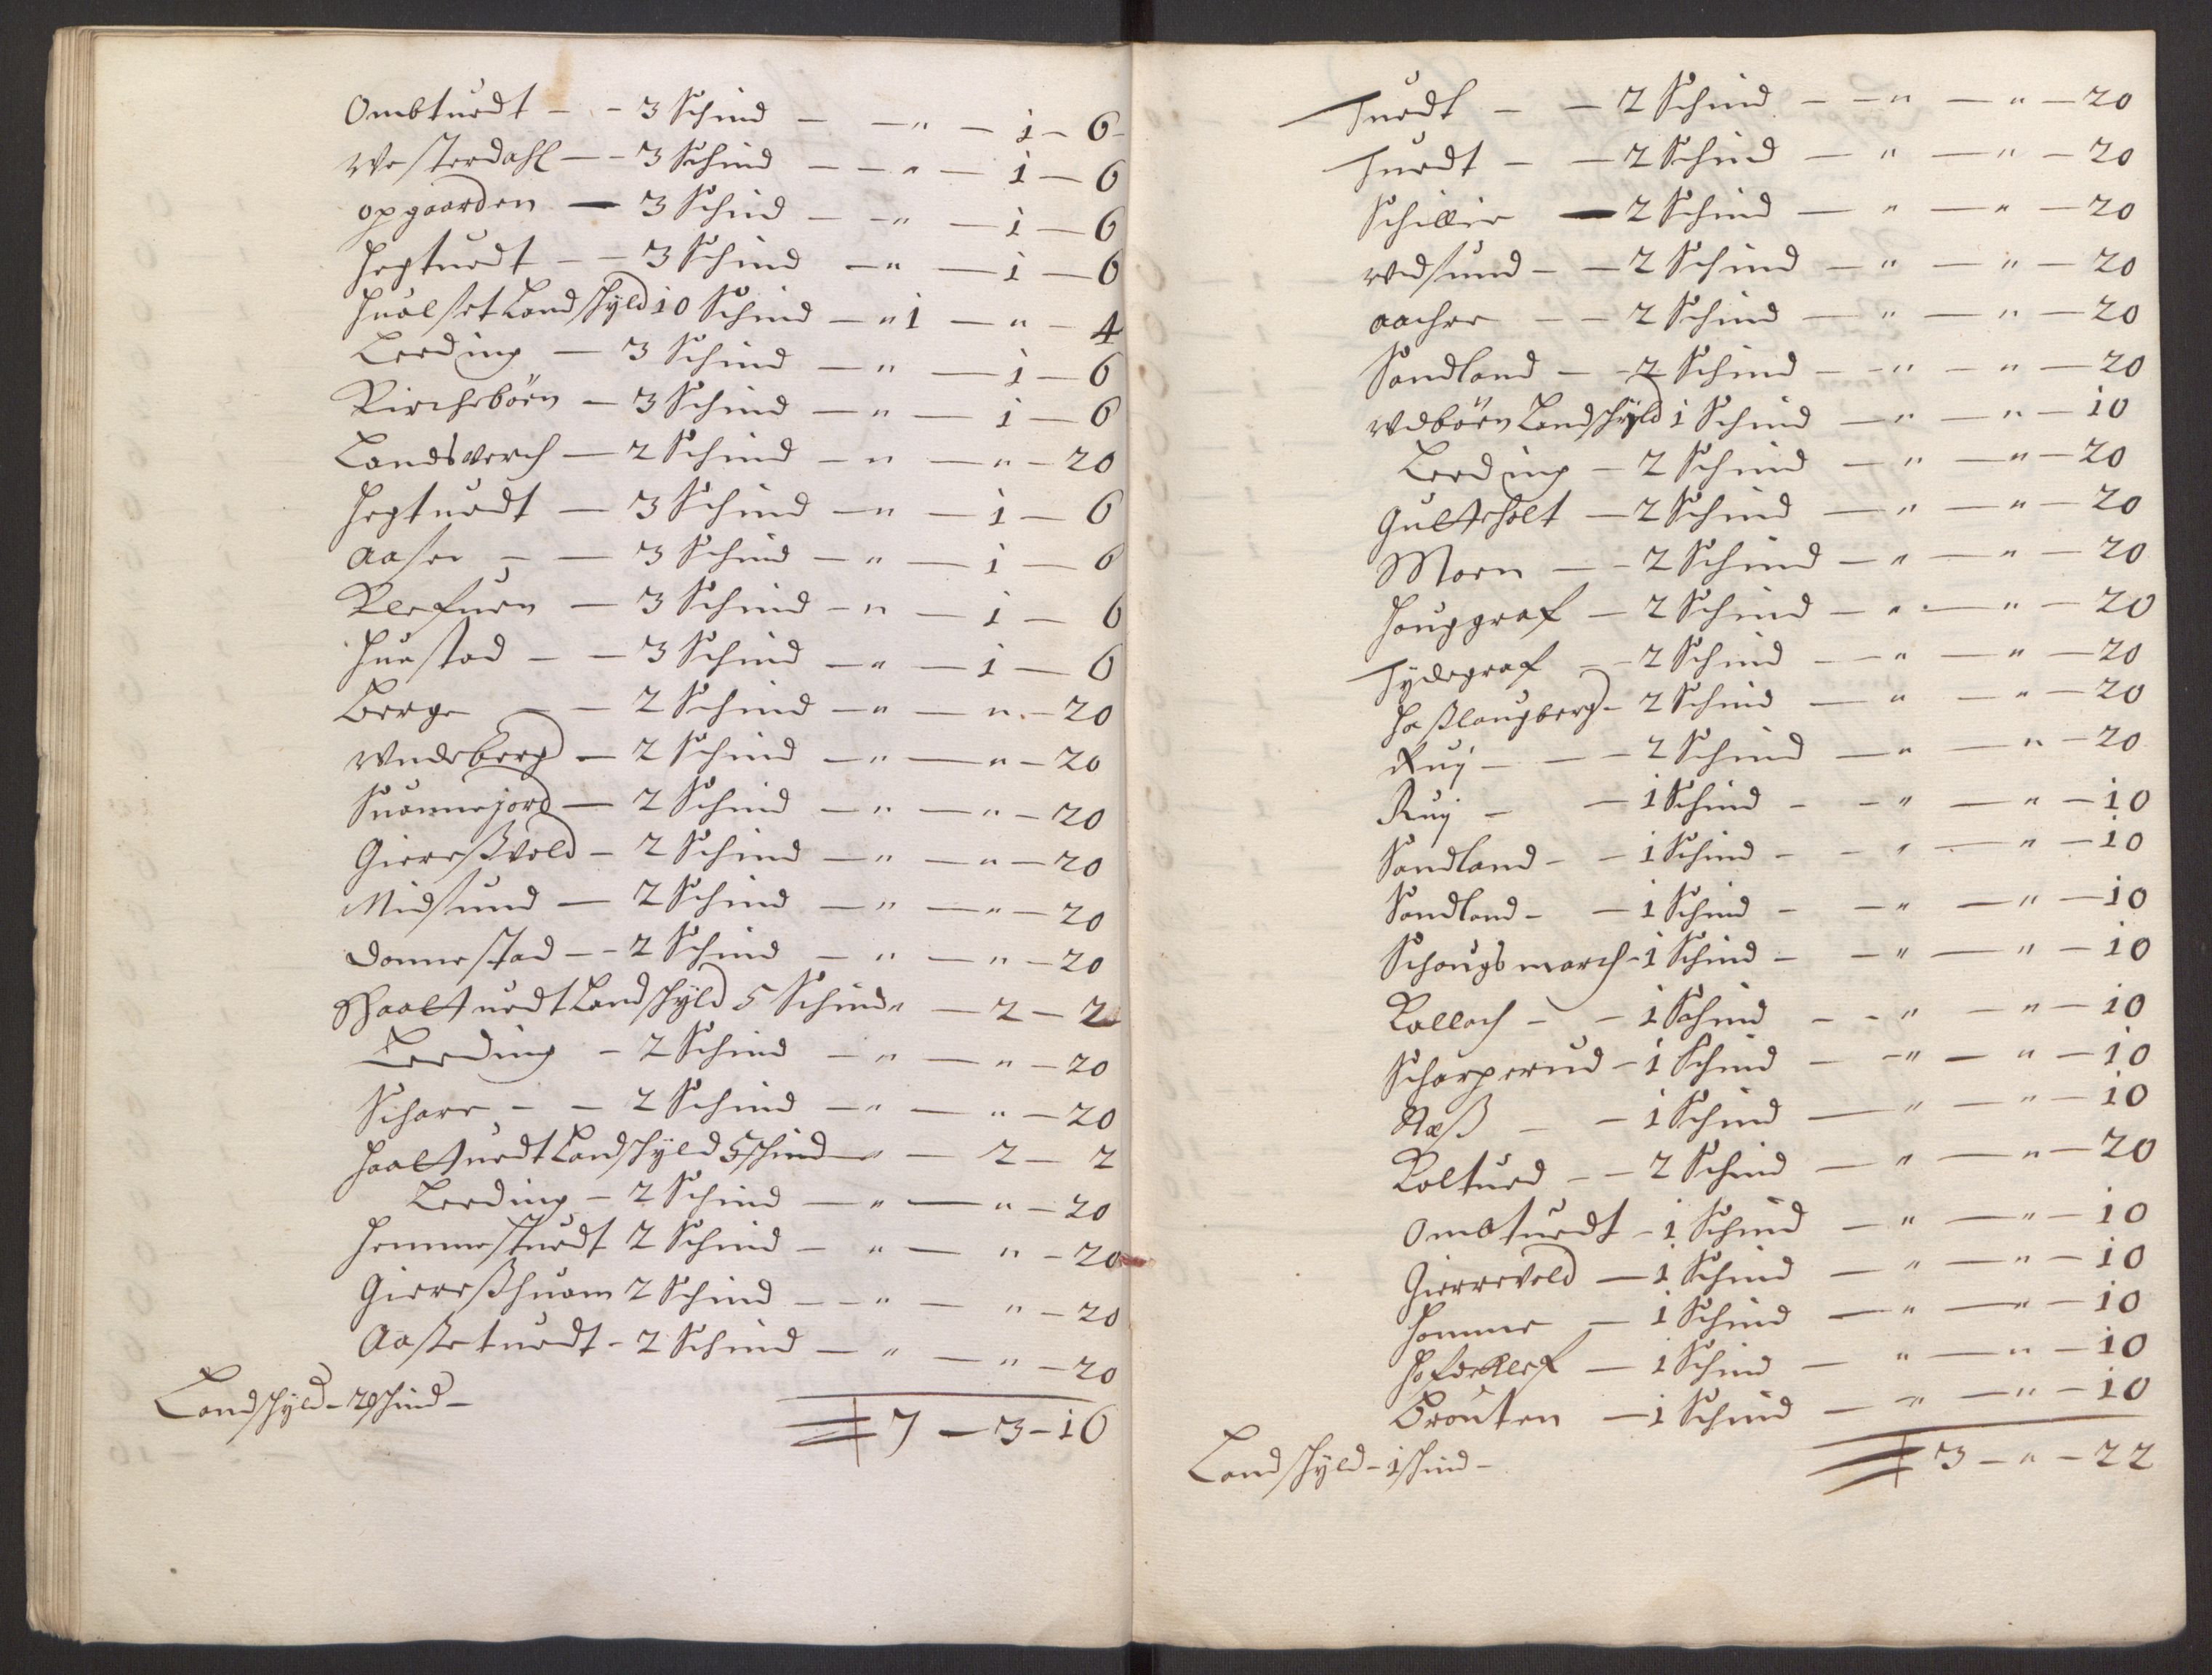 Ombtuedt - - 3 Schind - - " - 1 - 6 -
Westerdahl - - 3 Schind - - " - 1 - 6
opgaarden - 3 Schind - - " - 1 - 6
Hegtuedt - - 3 Schind - " - 1 - 6
Hualset Landschyld 10 Schind - " 1 - " - 4
Leeding - 3 Schind - " - 1 - 6
Kirchebøen - 3 Schind - " - 1 - 6
Landsverch - 2 Schind - " - " - 20
Hegtuedt - 3 Schind - " - 1 - 6
Aasen - - 3 Schind - " - 1 - 6
Klefuen - 3 Schind - " - 1 - 6
Huestad - - 3 Schind - " - 1 - 6
Berge - - 2 Schind - " - " - 20
Undeberg - 2 Schind - " - " - 20
Suannejord - 2 Schind - " - " - 20
Giereßvold - 2 Schind - " - " - 20
Midsund - 2 Schind - " - " - 20
Donnestad - - 2 Schind - " - " - 20
Haaltuedt Landschyld 5 Schind " - 2 - 2
Leeding - 2 Schind - " - " - 20
Schare - - 2 Schind - " - " - 20
Haaltuedt Landschyld 5 schind - " - 2 - 2
Leeding - 2 Schind - " - " - 20
Hemmestuedt 2 Schind - " - " - 20
Giereßhuam 2 Schind - - " - " - 20
Aaßetuedt - 2 Schind - " - " - 20
Landschyld - 20 schind -
7 - 3 - 16
Tuedt - - 2 Schind - - " - " - 20
Tuedt - - 2 Schind - " - " - 20
Schillie - 2 Schind - " - " - 20
Wdsund - - 2 Schind - " - " - 20
Aachre - - 2 Schind - " - " - 20
Sandland - - 2 Schind - - " - " - 20
Wdbøen Landschyld 1 Schind - " - " - 10
Leeding - 2 Schind - " - " - 20
Gulteholt - 2 Schind - " - " - 20
Moen - - 2 Schind - " - " - 20
Houggraf - 2 Schind - " - " - 20
Tydegraf - - 2 Schind - " - " - 20
Haßlaugberg - 2 Schind - " - " - 20
Ruy - - - 2 Schind - " - " - 20
Ruy - - 1 Schind - - " - " - 10
Sandland - - 1 Schind - - " - " - 10
Sandland - - 1 Schind - - " - " - 10
Schougsmarch - 1 Schind - - " - " - 10
Kalloch - - 1 Schind - - " - " - 10
Scharperud - 1 Schind - - " - " - 10
Næß - - 1 Schind - " - " - 10
Koltued - - 2 Schind - " - " - 20
Ombtuedt - 1 Schind - " - " - 10
Gierrevold - 1 Schind - " - " - 10
Homme - 1 Schind - " - " - 10
Hofdeklef - 1 Schind - " - " - 10
Brouten - 1 Schind - " - " - 10
Landschyld - 1 schind -
3 - " - 22